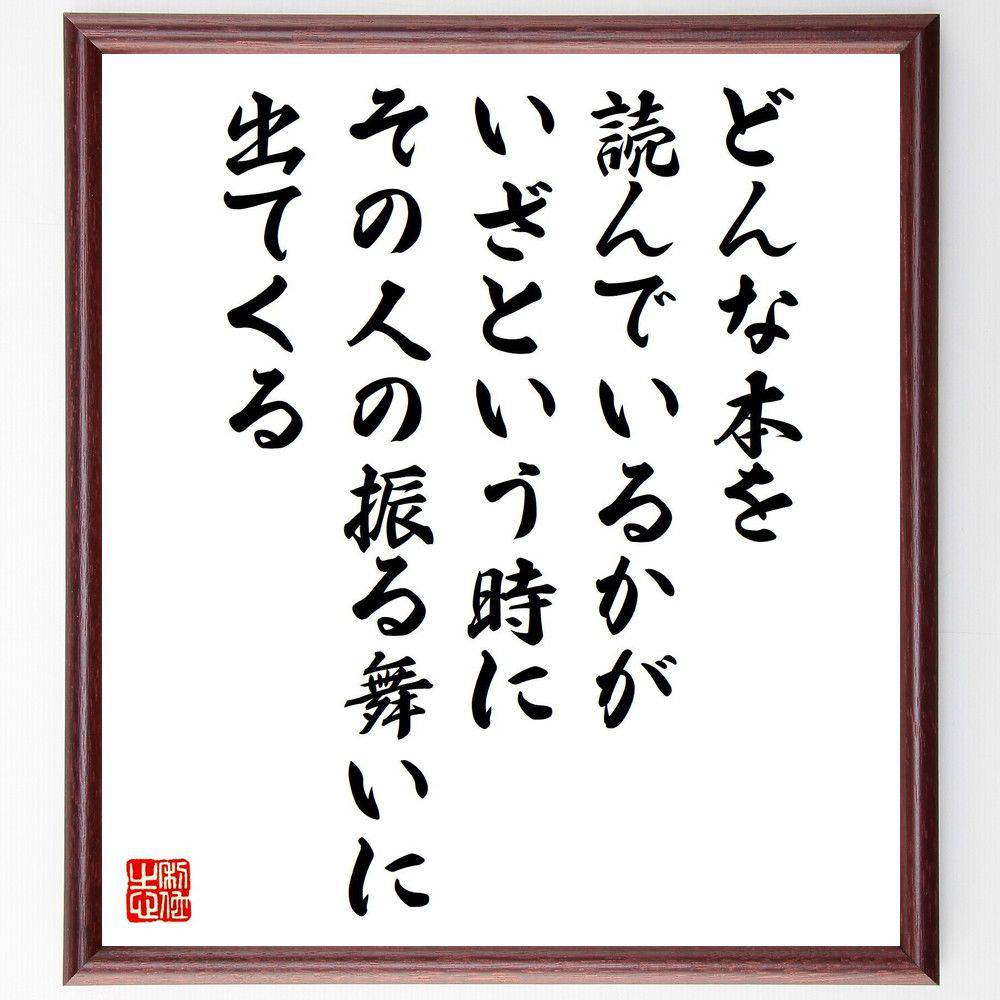 どんな本を
読んでいるかが
いざという時に
その人の振る舞いに
出てくる